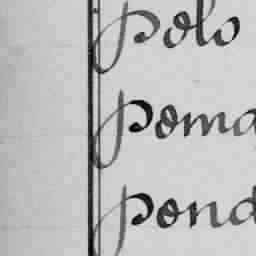 polo
poma
pond